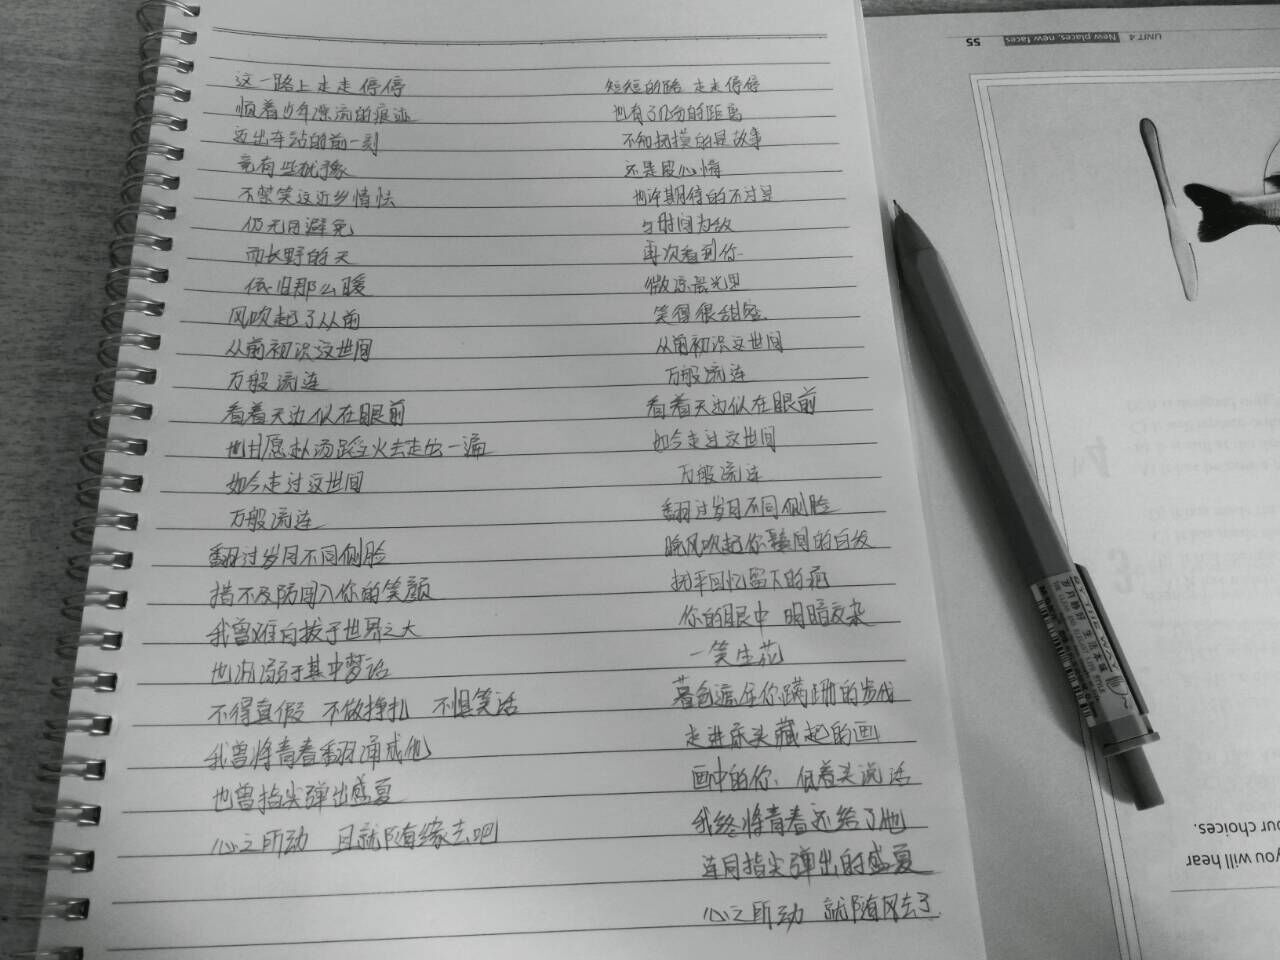 这一路上走走停停
顺着少年漂流的痕迹
迈出车站的前一刻
竟有些犹豫
不禁笑这近乡情怯
仍无可避免
而长野的天
依旧那么暖
风吹起了从前
从前初识这世间
万般流连
看着天边似在眼前
也甘愿赴汤蹈火去走它一遍
如今走过这世间
万般流连
翻过岁月不同侧脸
措不及防闯入你的笑颜
我曾难自拔于世界之大
也沉溺于其中梦话
不得真假 不做挣扎 不惧笑话
我曾将青春翻涌成他
也曾指尖弹出盛夏
心之所动 且就随缘去吧
短短的路 走走停停
也有了几分的距离
不知抚摸的是故事
还是段心情
也许期待的不过是
与时间为敌
再次看到你
微凉晨光里
笑得很甜蜜
从前初识这世间
万般流连
看着天边似在眼前
如今走过这世间
万般流连
翻过岁月不同侧脸
晚风吹起你鬓间的白发
抚平回忆留下的疤
你的眼中 明暗交杂
一笑生花
暮色遮住你蹒跚的步伐
走进床头藏起的画
画中的你、低着头说话
我终将青春还给了他
连同指尖弹出的盛夏
心之所动 就随风去了
55 New places, new faces UNIT 4
you will hear
our choices.